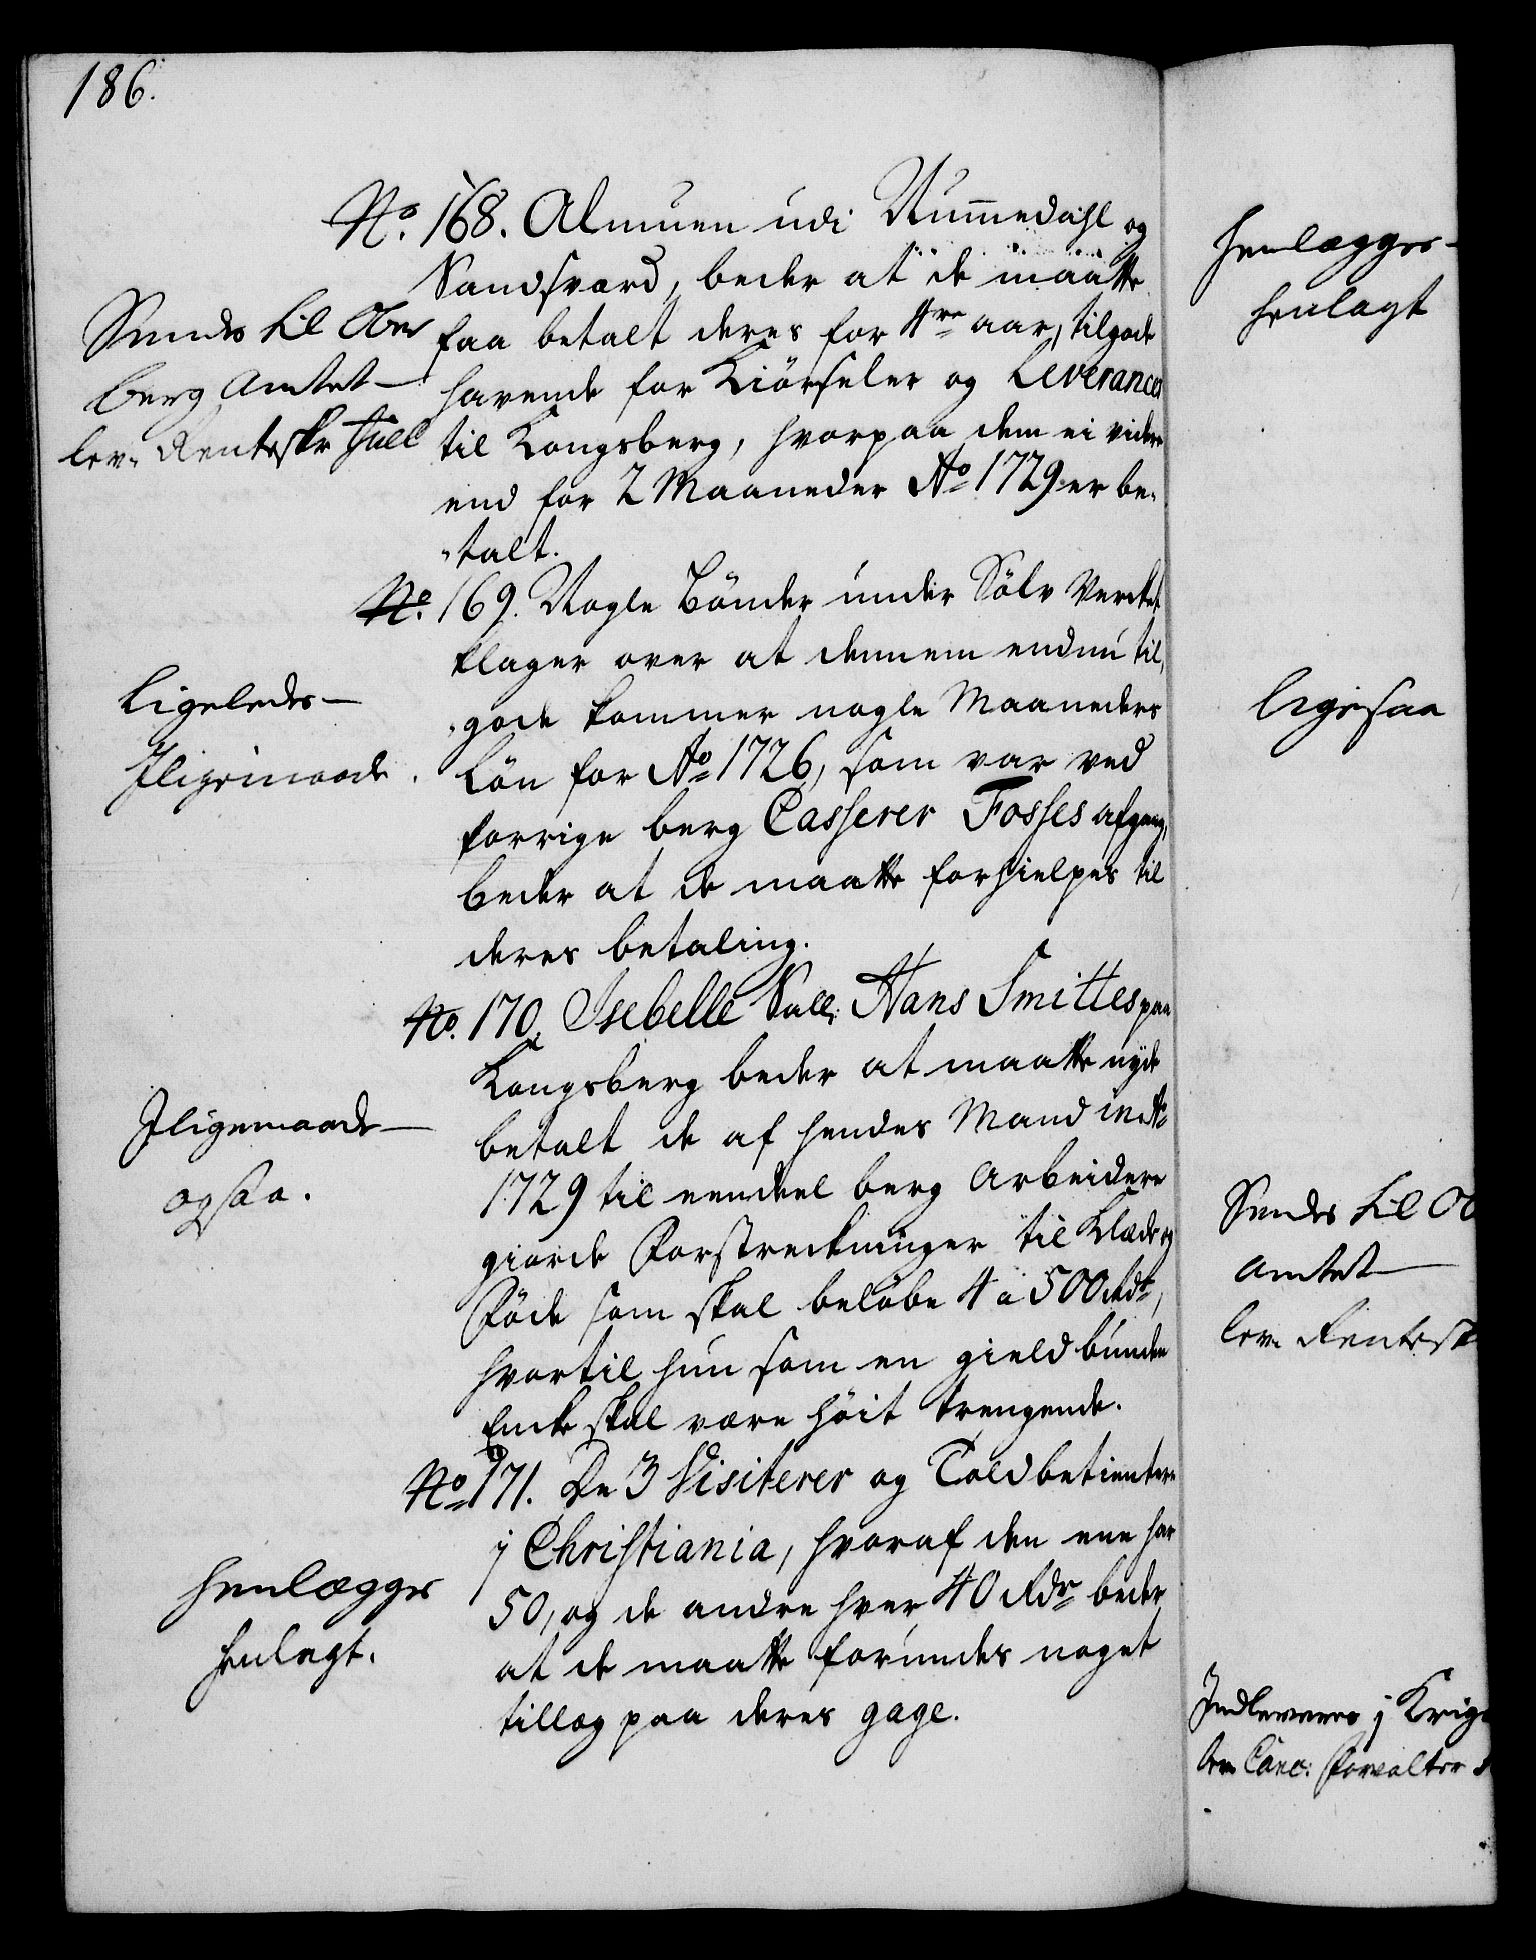 186.
No. 168. Almuen udi Nummedahl og
Sandsværd, beder at de maatte
faa betalt deres for 4re aar, tilgode
havende for Kiörseler og Leverancer
til Kongsberg, hvorpaa dem ei videre
end for 2 Maaneder Ao 1729 er be-
talt.
Sendes til Ober
berg Amtet
lev. Renteskr Juel
No. 169. Nogle Bönder under Sölv Verket
klager over at dennem endnu til
gode kommer nogle Maaneders
Lön for Ao 1726, som var ved
forrige berg Casserer Fosses afgang,
beder at de maatte forhielpes til
deres betaling.
Ligeledes
Iligemaade.
No. 170. Isebelle Sall. Hans Smittes paa
Kongsberg beder at maatte nyde
betalt de af hendes Mand in Ao
1729 til eendeel berg Arbeidere
giorde Forstreckninger til Klæde og
Föde som skal belöbe 4 a 500 Rdr,
hvortil hun som en gieldbunden
Encke skal være höit trengende.
Iligemaade
ogsaa.
No 171. De 3 Visiterer og Toldbetientere
i Christiania, hvoraf den ene har
50, og de andre hver 40 Rdr beder
at de maatte forundes noget
tillæg paa deres gage.
henlægges
henlagt.
henlægges
henlagt
ligesaa
Sendes til Ob
Amtet
lev. Rentesk
Indleveres i Krigs
lev. Canc: Forvalter